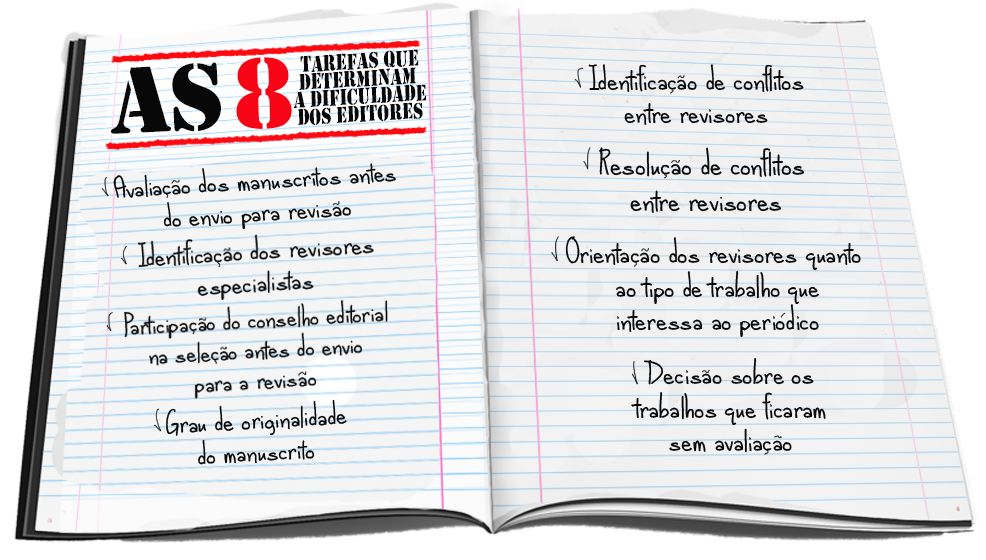 AS 8
TAREFAS QUE
DETERMINAM
A DIFICULDADE
DOS EDITORES
√ Avaliação dos manuscritos antes
do envio para revisão
√ Identificação dos revisores
especialistas
√ Participação do conselho editorial
na seleção antes do envio
para a revisão
√ Grau de originalidade
do manuscrito
√ Identificação de conflitos
entre revisores
√ Resolução de conflitos
entre revisores
√ Orientação dos revisores quanto
ao tipo de trabalho que
interessa ao periódico
√ Decisão sobre os
trabalhos que ficaram
sem avaliação